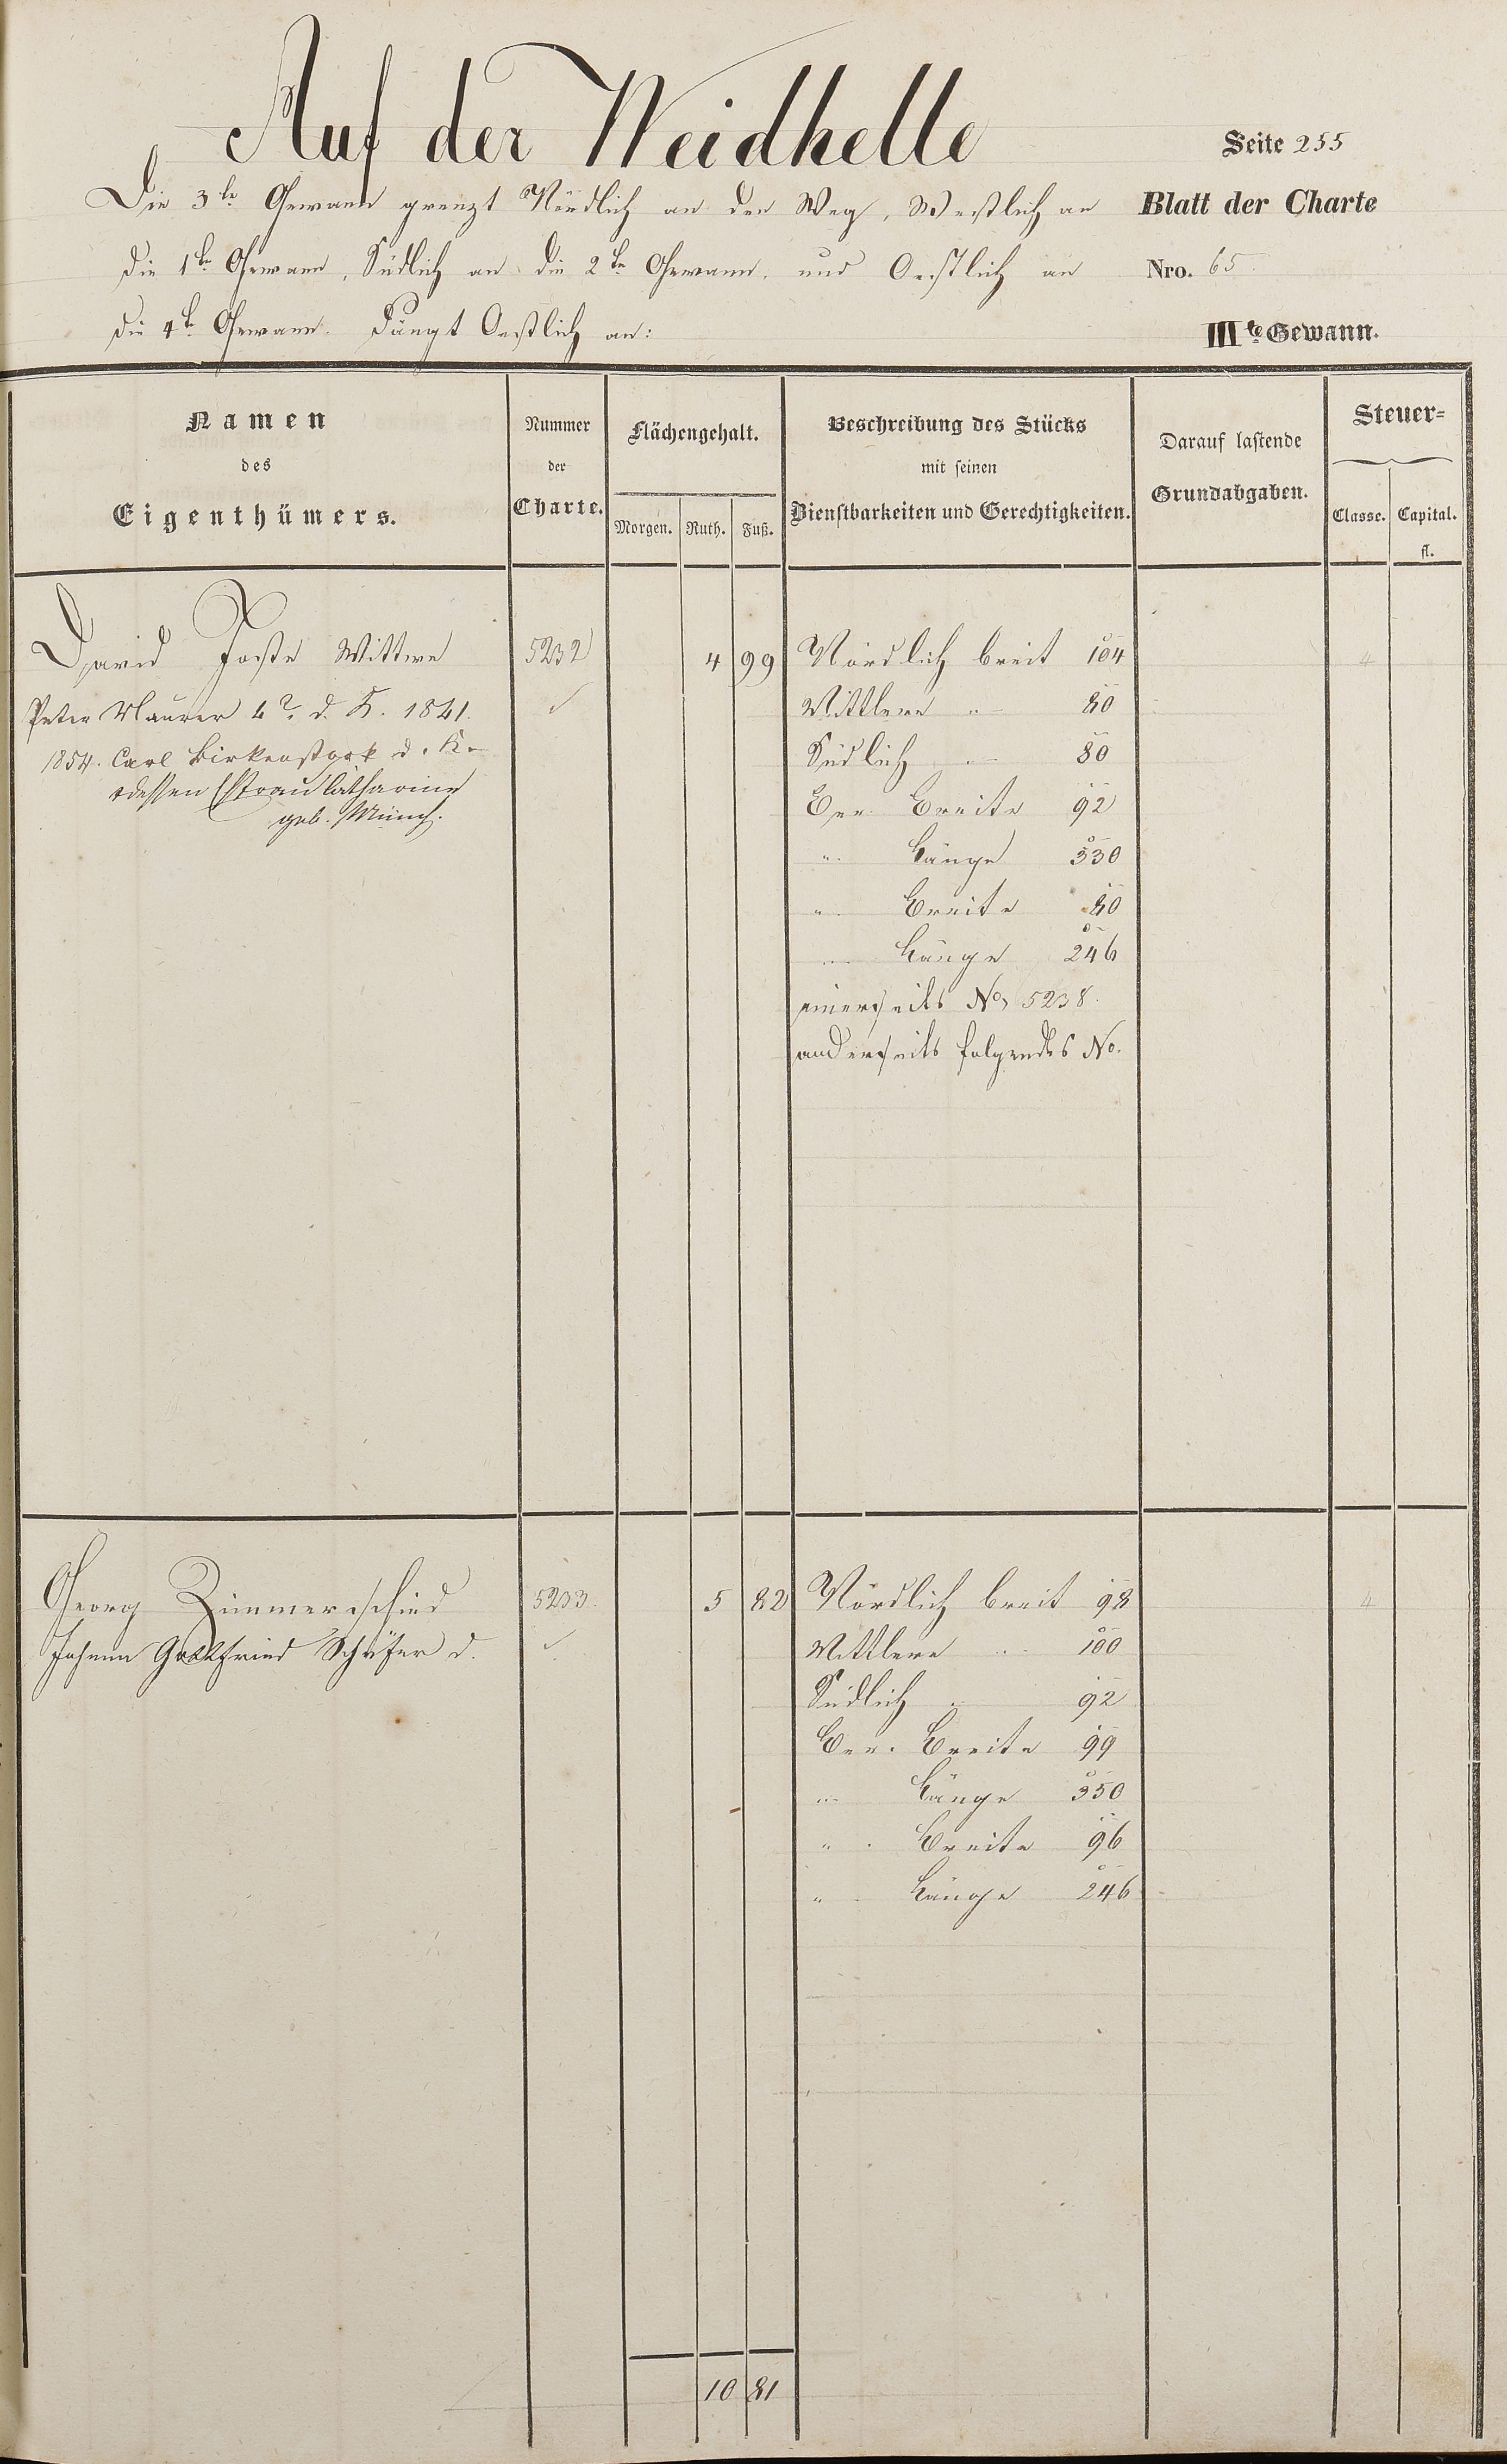 Auf der Weidhelle
Seite 255
Die 3te Gewann grenzt Nördlich an den Weg, Westlich an
Blatt der Charte
die 1te Gewann, Südlich an die 2te Gewann. und Oestlich an
Nro. 65
die 4te Gewann. Fängt Oestlich an:
IIIte Gewann.
Namen
des
Eigenthümers.
Nummer
der
Charte.
Flächengehalt.
Morgen. Ruth. Fuß.
Beschreibung des Stücks
mit seinen
Dienstbarkeiten und Gerechtigkeiten.
Darauf lastende
Grundabgaben.
Steuer-
Classe. Capital.
fl.
David Wittwe 5232 4 99 Nördlich breit 104 4
Peter Maurer d. K. 1841. Mittlere " 80
1854. Carl Birkenstock d. K. Südlich " 80
dessen Ehefrau Catharine Ber. Breite 92
geb. Münch.
" Länge 330
" Breite 80
" Länge 246
einerseits No 5238.
anderseits folgendes No.
Georg Zimmerschied 5233. 5 82 Nördlich breit 98 4
Johann Gottfried Schäfer d. Mittlere " 100
Südlich " 92
Ber. Breite 99
" Länge 350
" Breite 96
" Länge 246
10 81